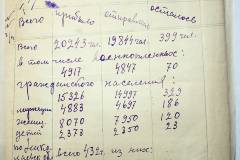 Всего прибыло отправлено осталось
Всего 20243 чел. 19844 чел. 399 чел.
в том числе военнопленных:
4917 4847 70
гражданского населения:
15326 14997 329
мужчин 4883 4697 186
женщ. 8070 7950 120
детей 2373 2350 23
всего 432 из них: